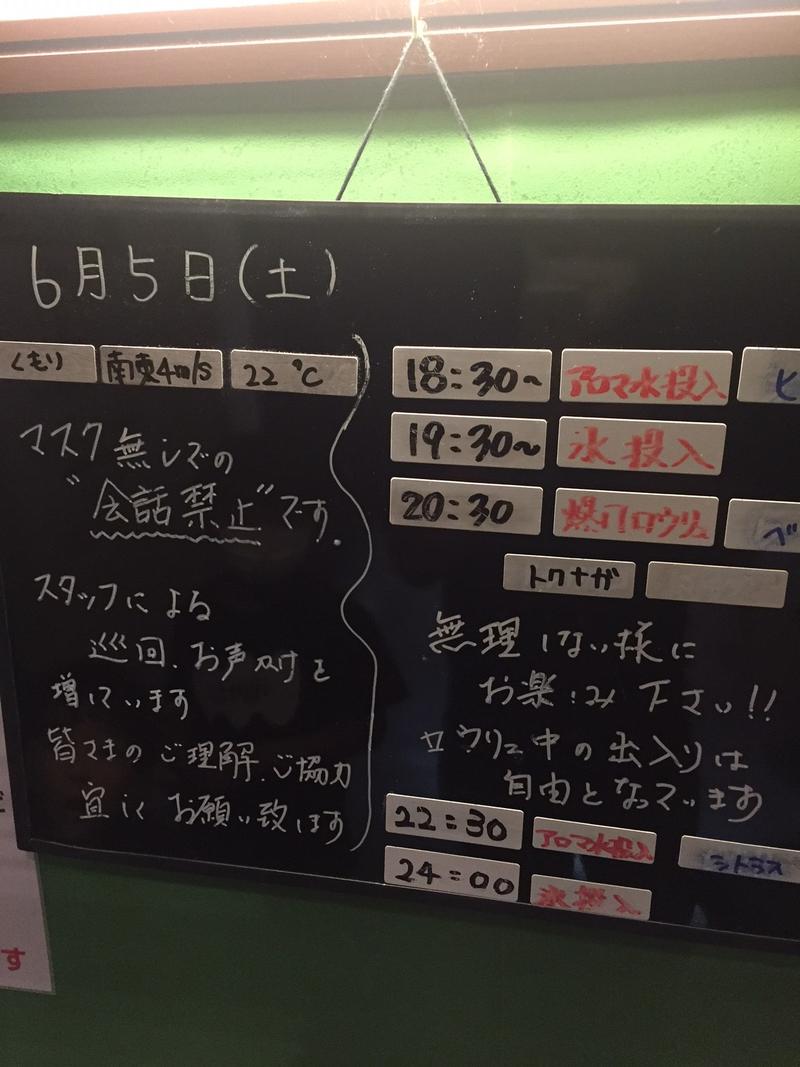 6月5日(土)
くもり 南東4m/s 22℃
マスク無しでの
"会話禁止"です.
スタッフによる
巡回、お声掛けを
増しています
皆さまのご理解、ご協力
宜しくお願い致します
18:30~ アロマ水投入 ヒ
19:30~ 氷投入
20:30 爆門ロウリュ ベ
トクナガ
無理しない様に
お楽しみ下さい!!
ロウリュ中の出入りは
自由となっています
22:30 アロマ水投入 シトラス
24:00 氷投入
す